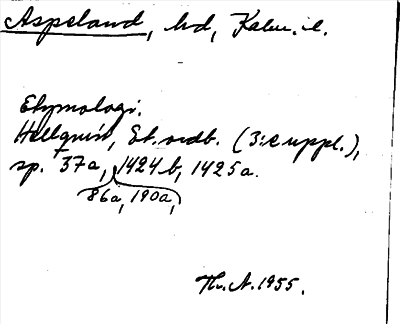 Aspeland, hd, Kalm. l.
Etymologi.
Hellquist, Et. ordb. (3:e uppl.),
sp. 37a, 1424b, 1425a.
86a, 190a,
Th. A. 1955.